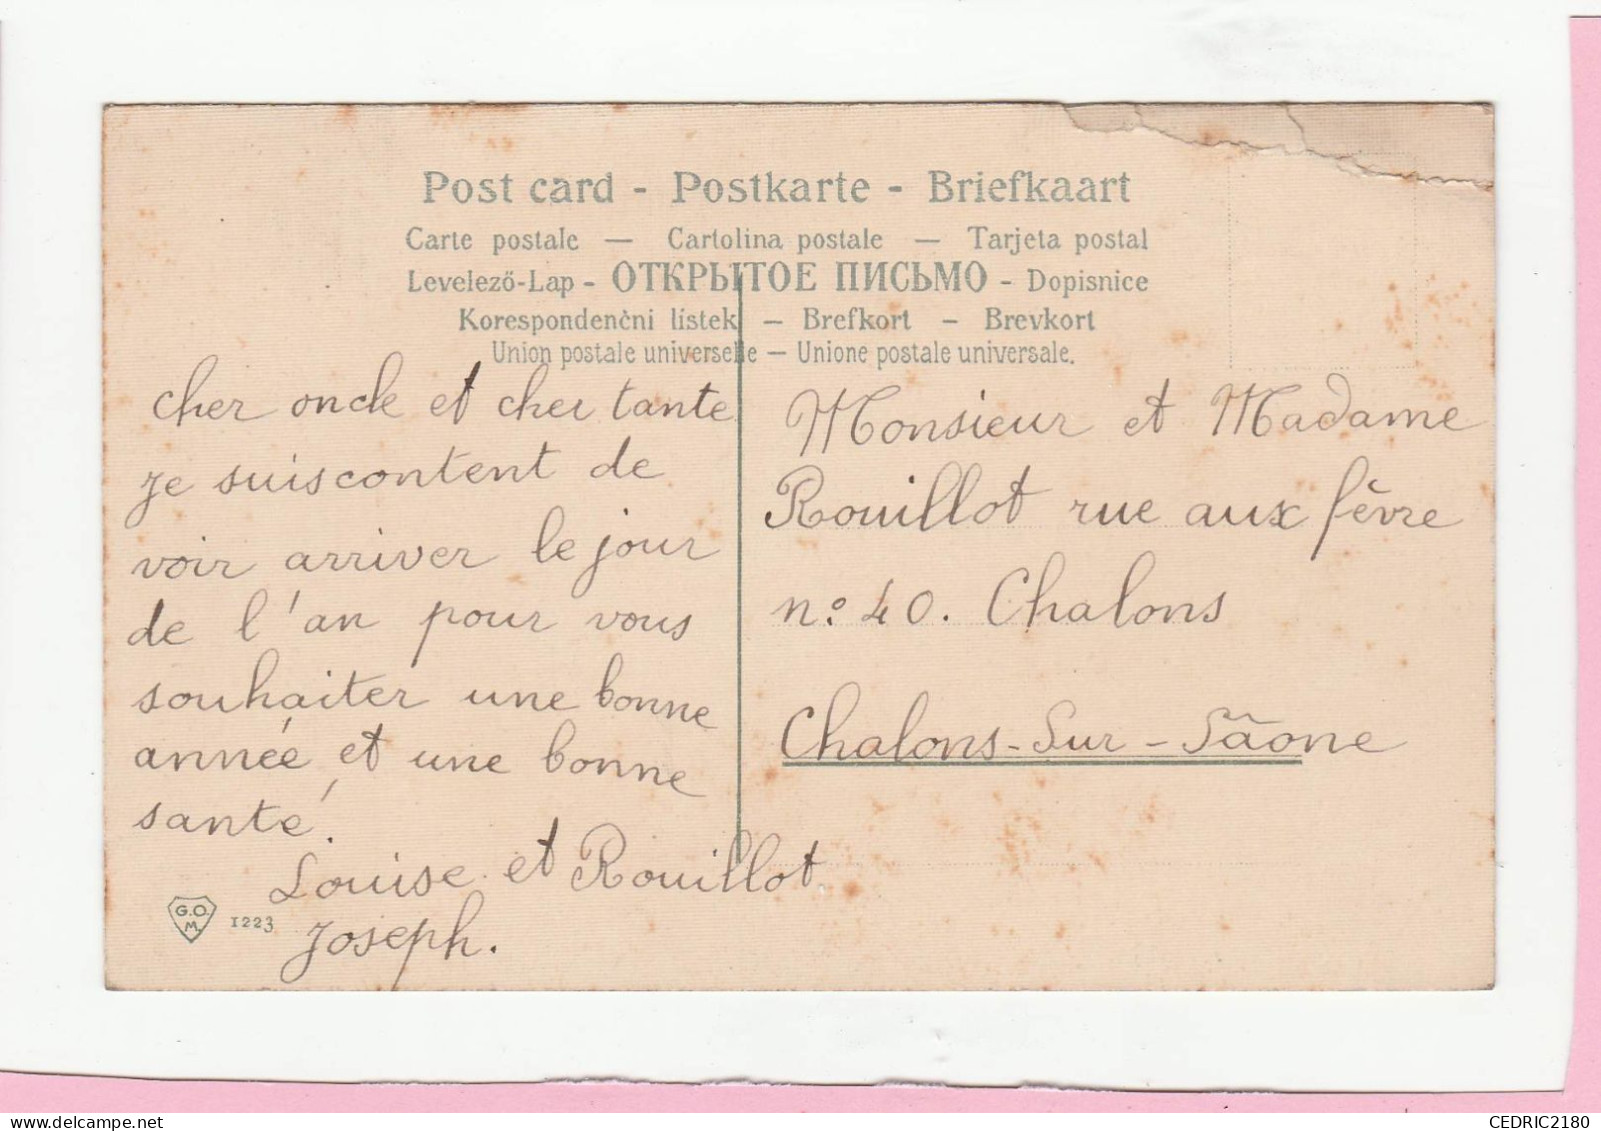 Post card - Postkarte - Briefkaart
Carte postale — Cartolina postale — Tarjeta postal
Levelező-Lap - ОТКРЫТОЕ ПИСЬМО - Dopisnice
Korespondenčni lístek — Brefkort — Brevkort
Union postale universelle — Unione postale universale.
cher oncle et cher tante
je suis content de
voir arriver le jour
de l'an pour vous
souhaiter une bonne
année et une bonne
santé.
Louise et Rouillot
Joseph.
G.O.
M.
1223
Monsieur et Madame
Rouillot rue aux fèvre
n.o 40. Chalons
Chalons-Sur-Sâone
CEDRIC2180